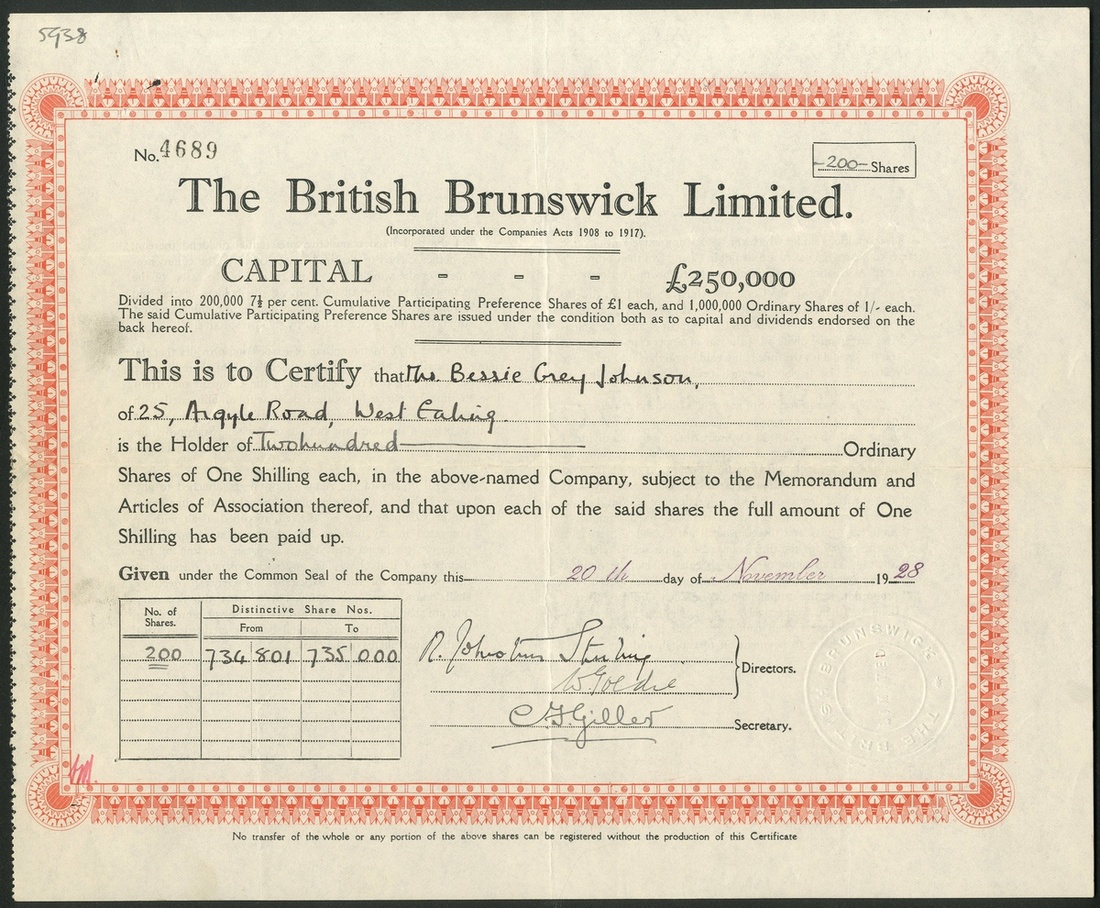 5938
No. 4689
-200- Shares
The British Brunswick Limited.
(Incorporated under the Companies Acts 1908 to 1917).
CAPITAL - - - £250,000
Divided into 200,000 7½ per cent. Cumulative Participating Preference Shares of £1 each, and 1,000,000 Ordinary Shares of 1/- each.
The said Cumulative Participating Preference Shares are issued under the condition both as to capital and dividends endorsed on the
back hereof.
This is to Certify that Mrs. Bessie Grey Johnson,
of 25, Argyle Road, West Ealing
is the Holder of Two hundred Ordinary
Shares of One Shilling each, in the above-named Company, subject to the Memorandum and
Articles of Association thereof, and that upon each of the said shares the full amount of One
Shilling has been paid up.
Given under the Common Seal of the Company this 20th day of November 1928
No. of Shares. Distinctive Share Nos.
From To
200 734 801 735 000
R. Johnston Stirling
W. Goldie
Directors.
C. F. Giller
Secretary.
THE BRITISH BRUNSWICK
No transfer of the whole or any portion of the above shares can be registered without the production of this Certificate